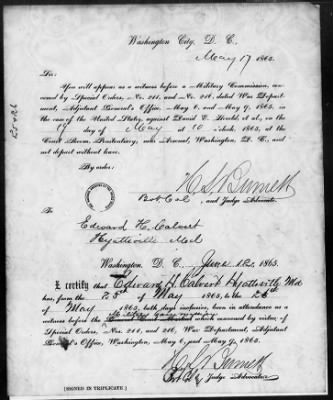 Washington City, D. C.,
May 17 1865.
Sir:
You will appear as a witness before a Military Commission, con-
vened by Special Orders, Nos. 211, and No. 216, dated War Depart-
ment, Adjutant General's Office, May 6, and May 9, 1865, in
the case of the United States, against David E. Herold et al., on the
day of May at 10 o'clock, 1865, at the
Court Room, Penitentiary, near Arsenal, Washington, D. C., and
not depart without leave.
By order:
H L Burnett
Bvt Col, and Judge Advocate.
To
Edward H. Calvert
Hyattsville Md
Washington, D. C., June 1865.
I certify that Edward H. Calvert Hyattsville Md
has, from the of May 1865, to the
of May 1865, both days inclusive, been in attendance as a
witness before the which convened by virtue of
Special Orders, Nos. 211, and 216, War Department, Adjutant
General's Office, Washington, May 6, and May 9, 1865.
H L Burnett
Judge Advocate.
[SIGNED IN TRIPLICATE.]